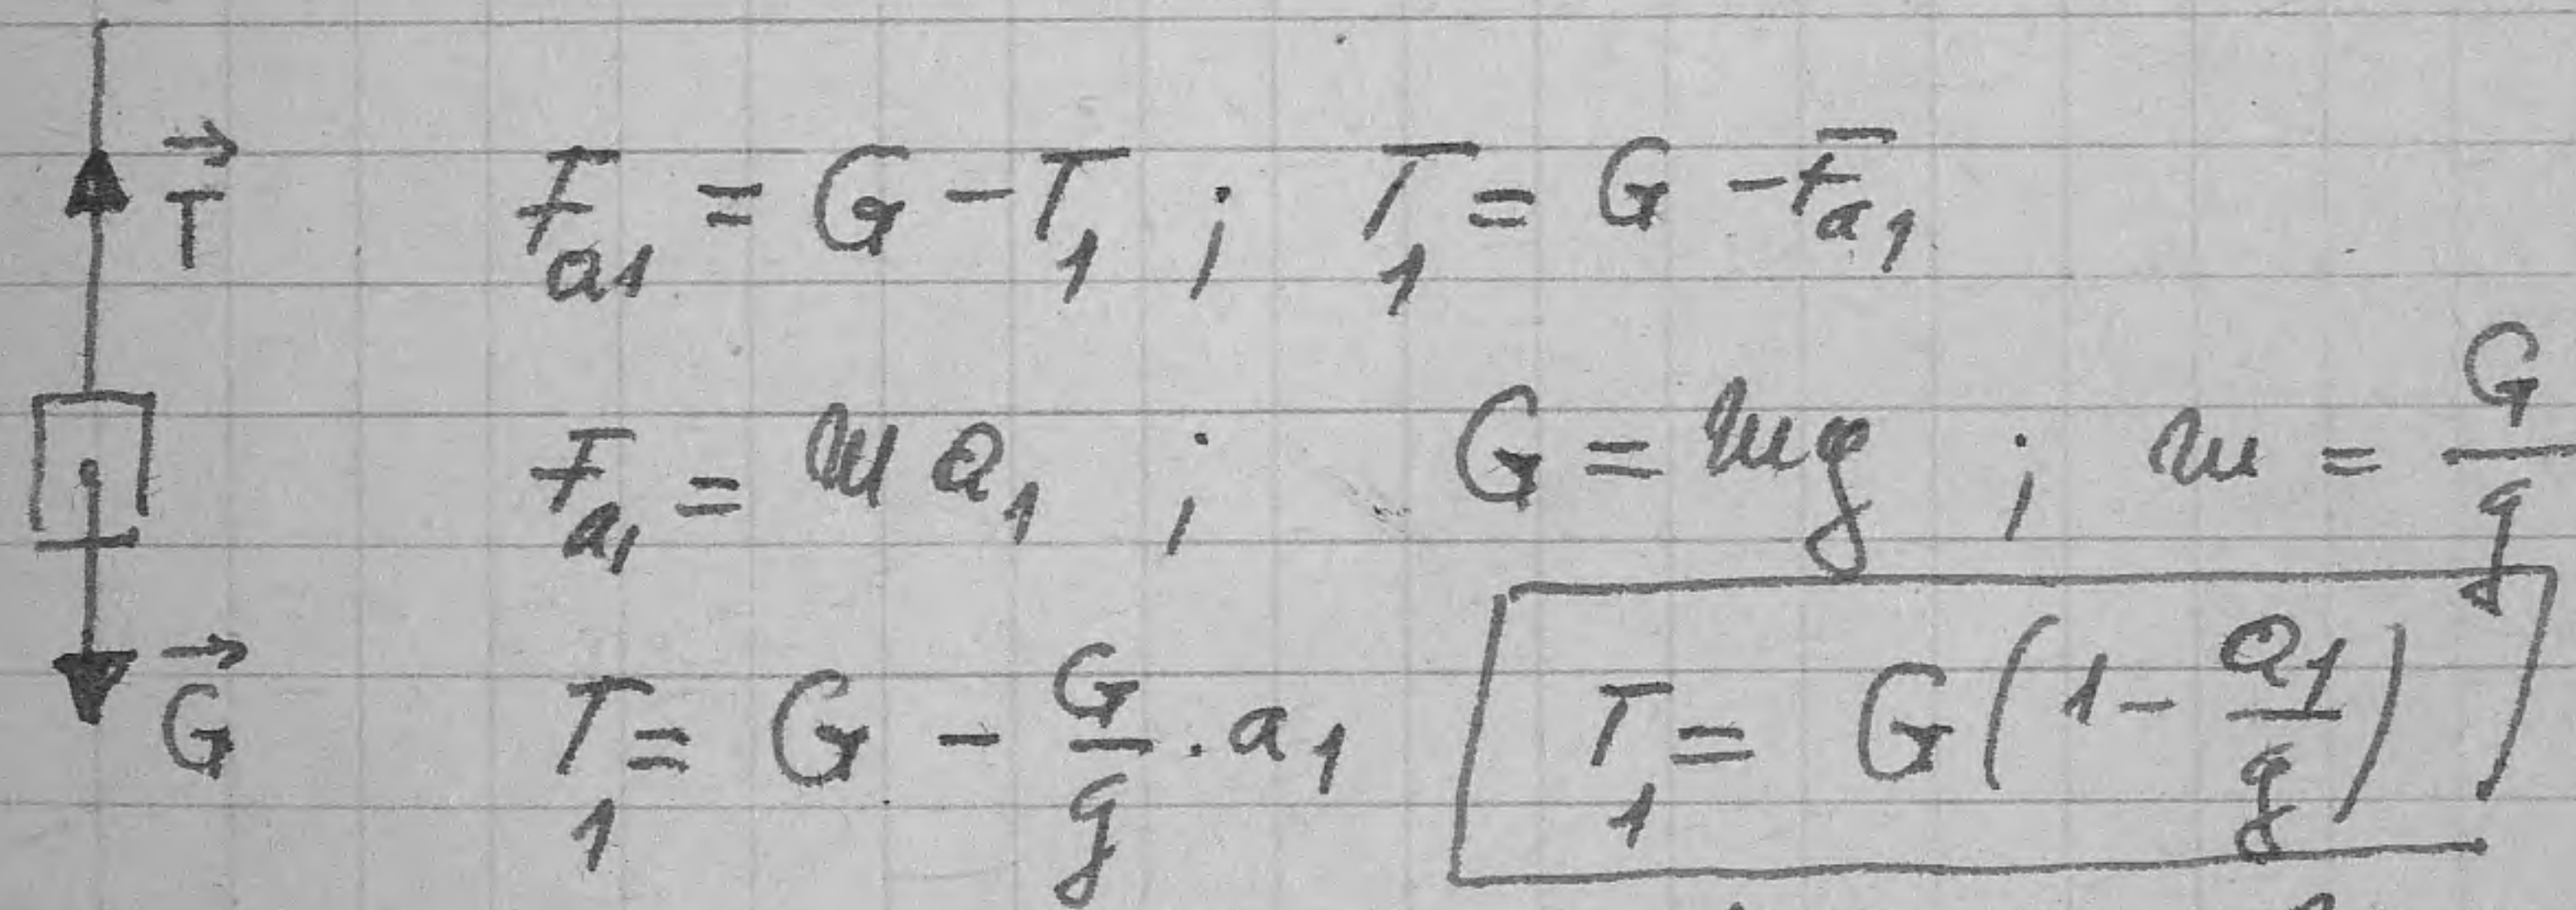 T⃗
F_a1 = G - T_1 ; T_1 = G - F_a1
F_a1 = m a_1 ; G = mg ; m = G/g
G⃗
T_1 = G - G/g . a_1 T_1 = G(1 - a_1/g)